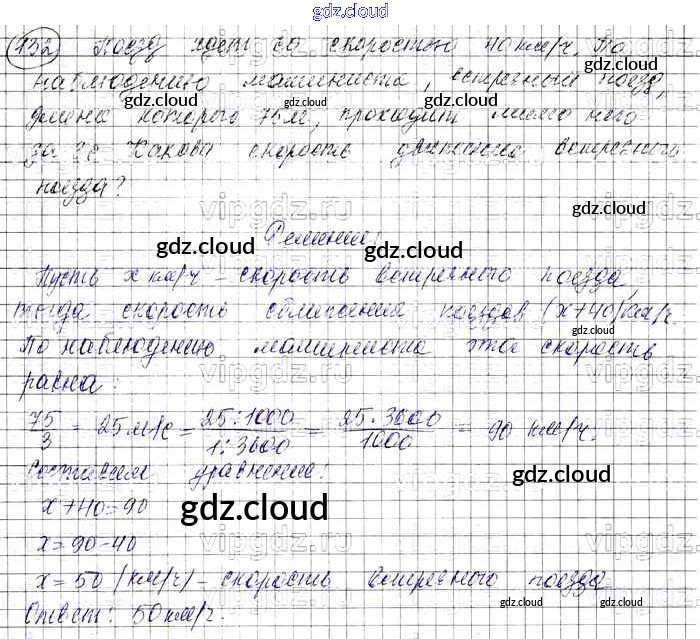 gdz.cloud
132 Поезд идёт со скоростью 40 км/ч. По
наблюдению машиниста, встречный поезд,
gdz.cloud gdz.cloud gdz.cloud
длина которого 75 м, проходит мимо него
за 3 с. Какова скорость движения встречного
поезда?
vipgdz.ru gdz.cloud
Решение:
gdz.cloud gdz.cloud
Пусть x км/ч - скорость встречного поезда,
тогда скорость сближения поездов (x+40) км/ч.
gdz.cloud
По наблюдению машиниста эта скорость
gdz.cloud
равна:
75/3 = 25 м/с = 25:1000/1:3600 = 25·3600/1000 = 90 км/ч.
Составим уравнение:
gdz.cloud
x+40=90
gdz.cloud
x=90-40
x=50 (км/ч) - скорость встречного поезда
gdz.cloud gdz.cloud
Ответ: 50 км/ч.